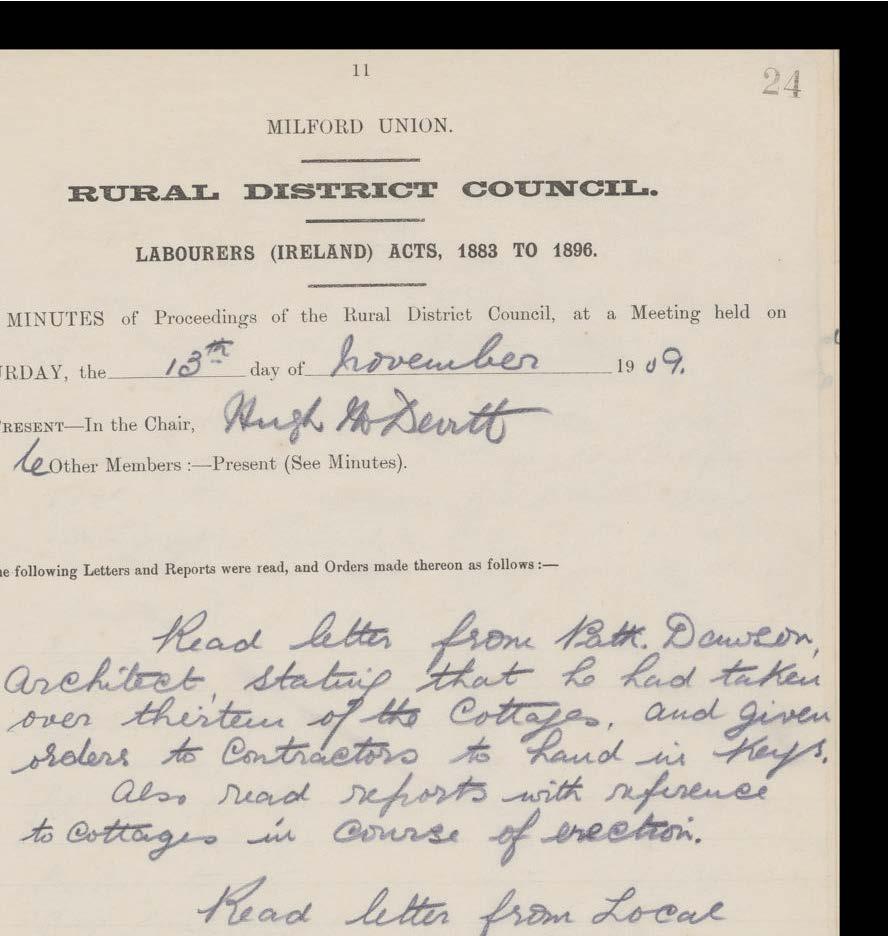 11
24
MILFORD UNION.
RURAL DISTRICT COUNCIL.
LABOURERS (IRELAND) ACTS, 1883 TO 1896.
MINUTES of Proceedings of the Rural District Council, at a Meeting held on
URDAY, the 13th day of November 1909.
RESENT—In the Chair, Hugh McDevitt
6 Other Members :—Present (See Minutes).
he following Letters and Reports were read, and Orders made thereon as follows :—
Read letter from Patk. Dawson,
Architect, stating that he had taken
over thirteen of the Cottages, and given
orders to Contractors to hand in Keys.
Also read reports with reference
to Cottages in course of erection.
Read letter from Local